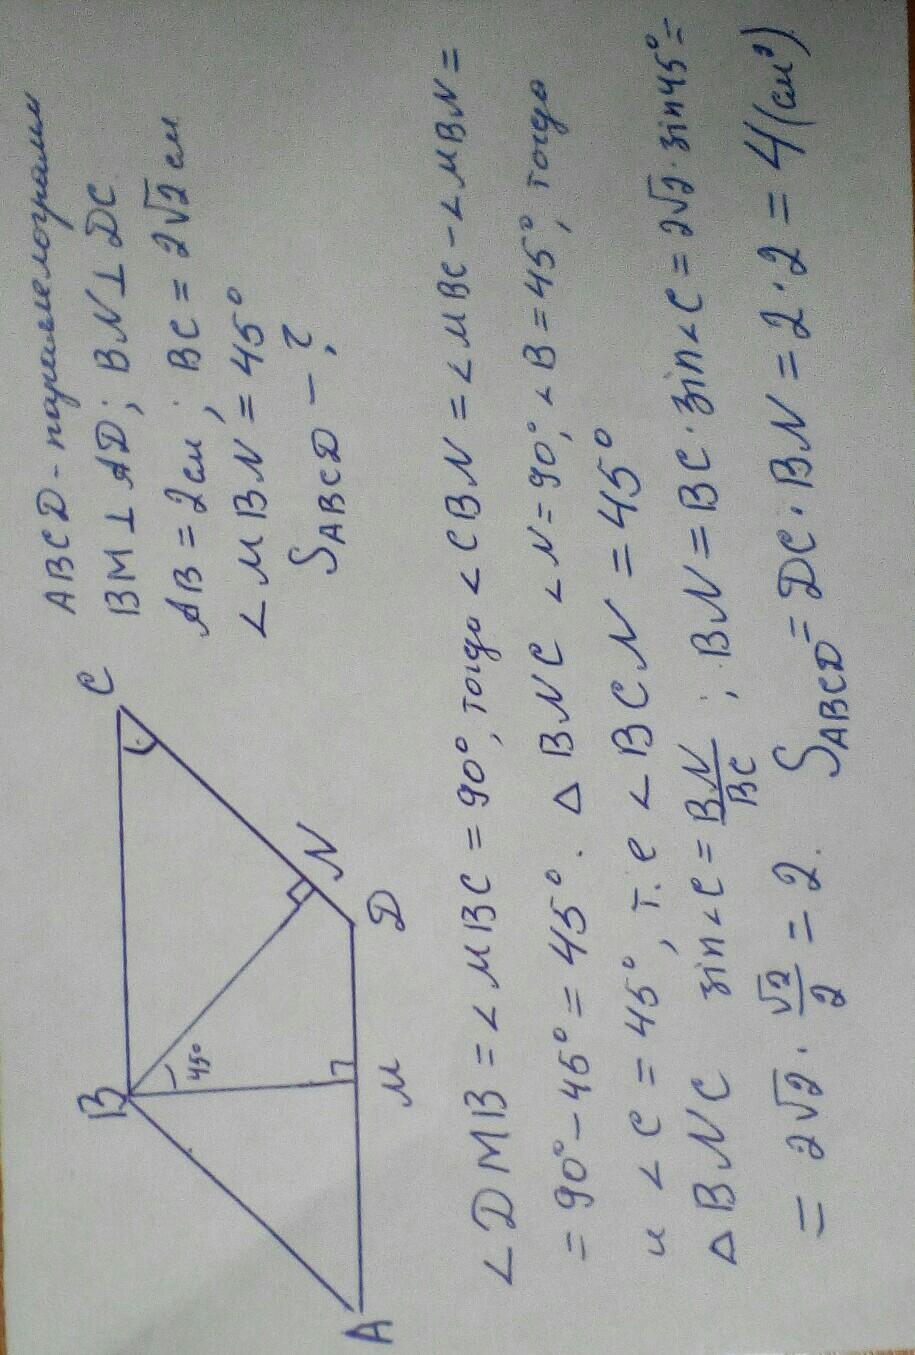 ABCD - параллелограмм
BM ⊥ AD; BN ⊥ DC
AB = 2см; BC = 2√2 см
∠MBN = 45°
S_ABCD - ?
B
C
45°
N
A
M
D
∠DMB = ∠MBC = 90°, тогда ∠CBN = ∠MBC - ∠MBN =
= 90° - 45° = 45°. △BNC ∠N = 90°, ∠B = 45°, тогда
и ∠C = 45°, т.е ∠BCN = 45°
△BNC sin∠C = BN/BC ; BN = BC · sin∠C = 2√2 · sin45° =
= 2√2 · √2/2 = 2. S_ABCD = DC · BN = 2 · 2 = 4 (см²)